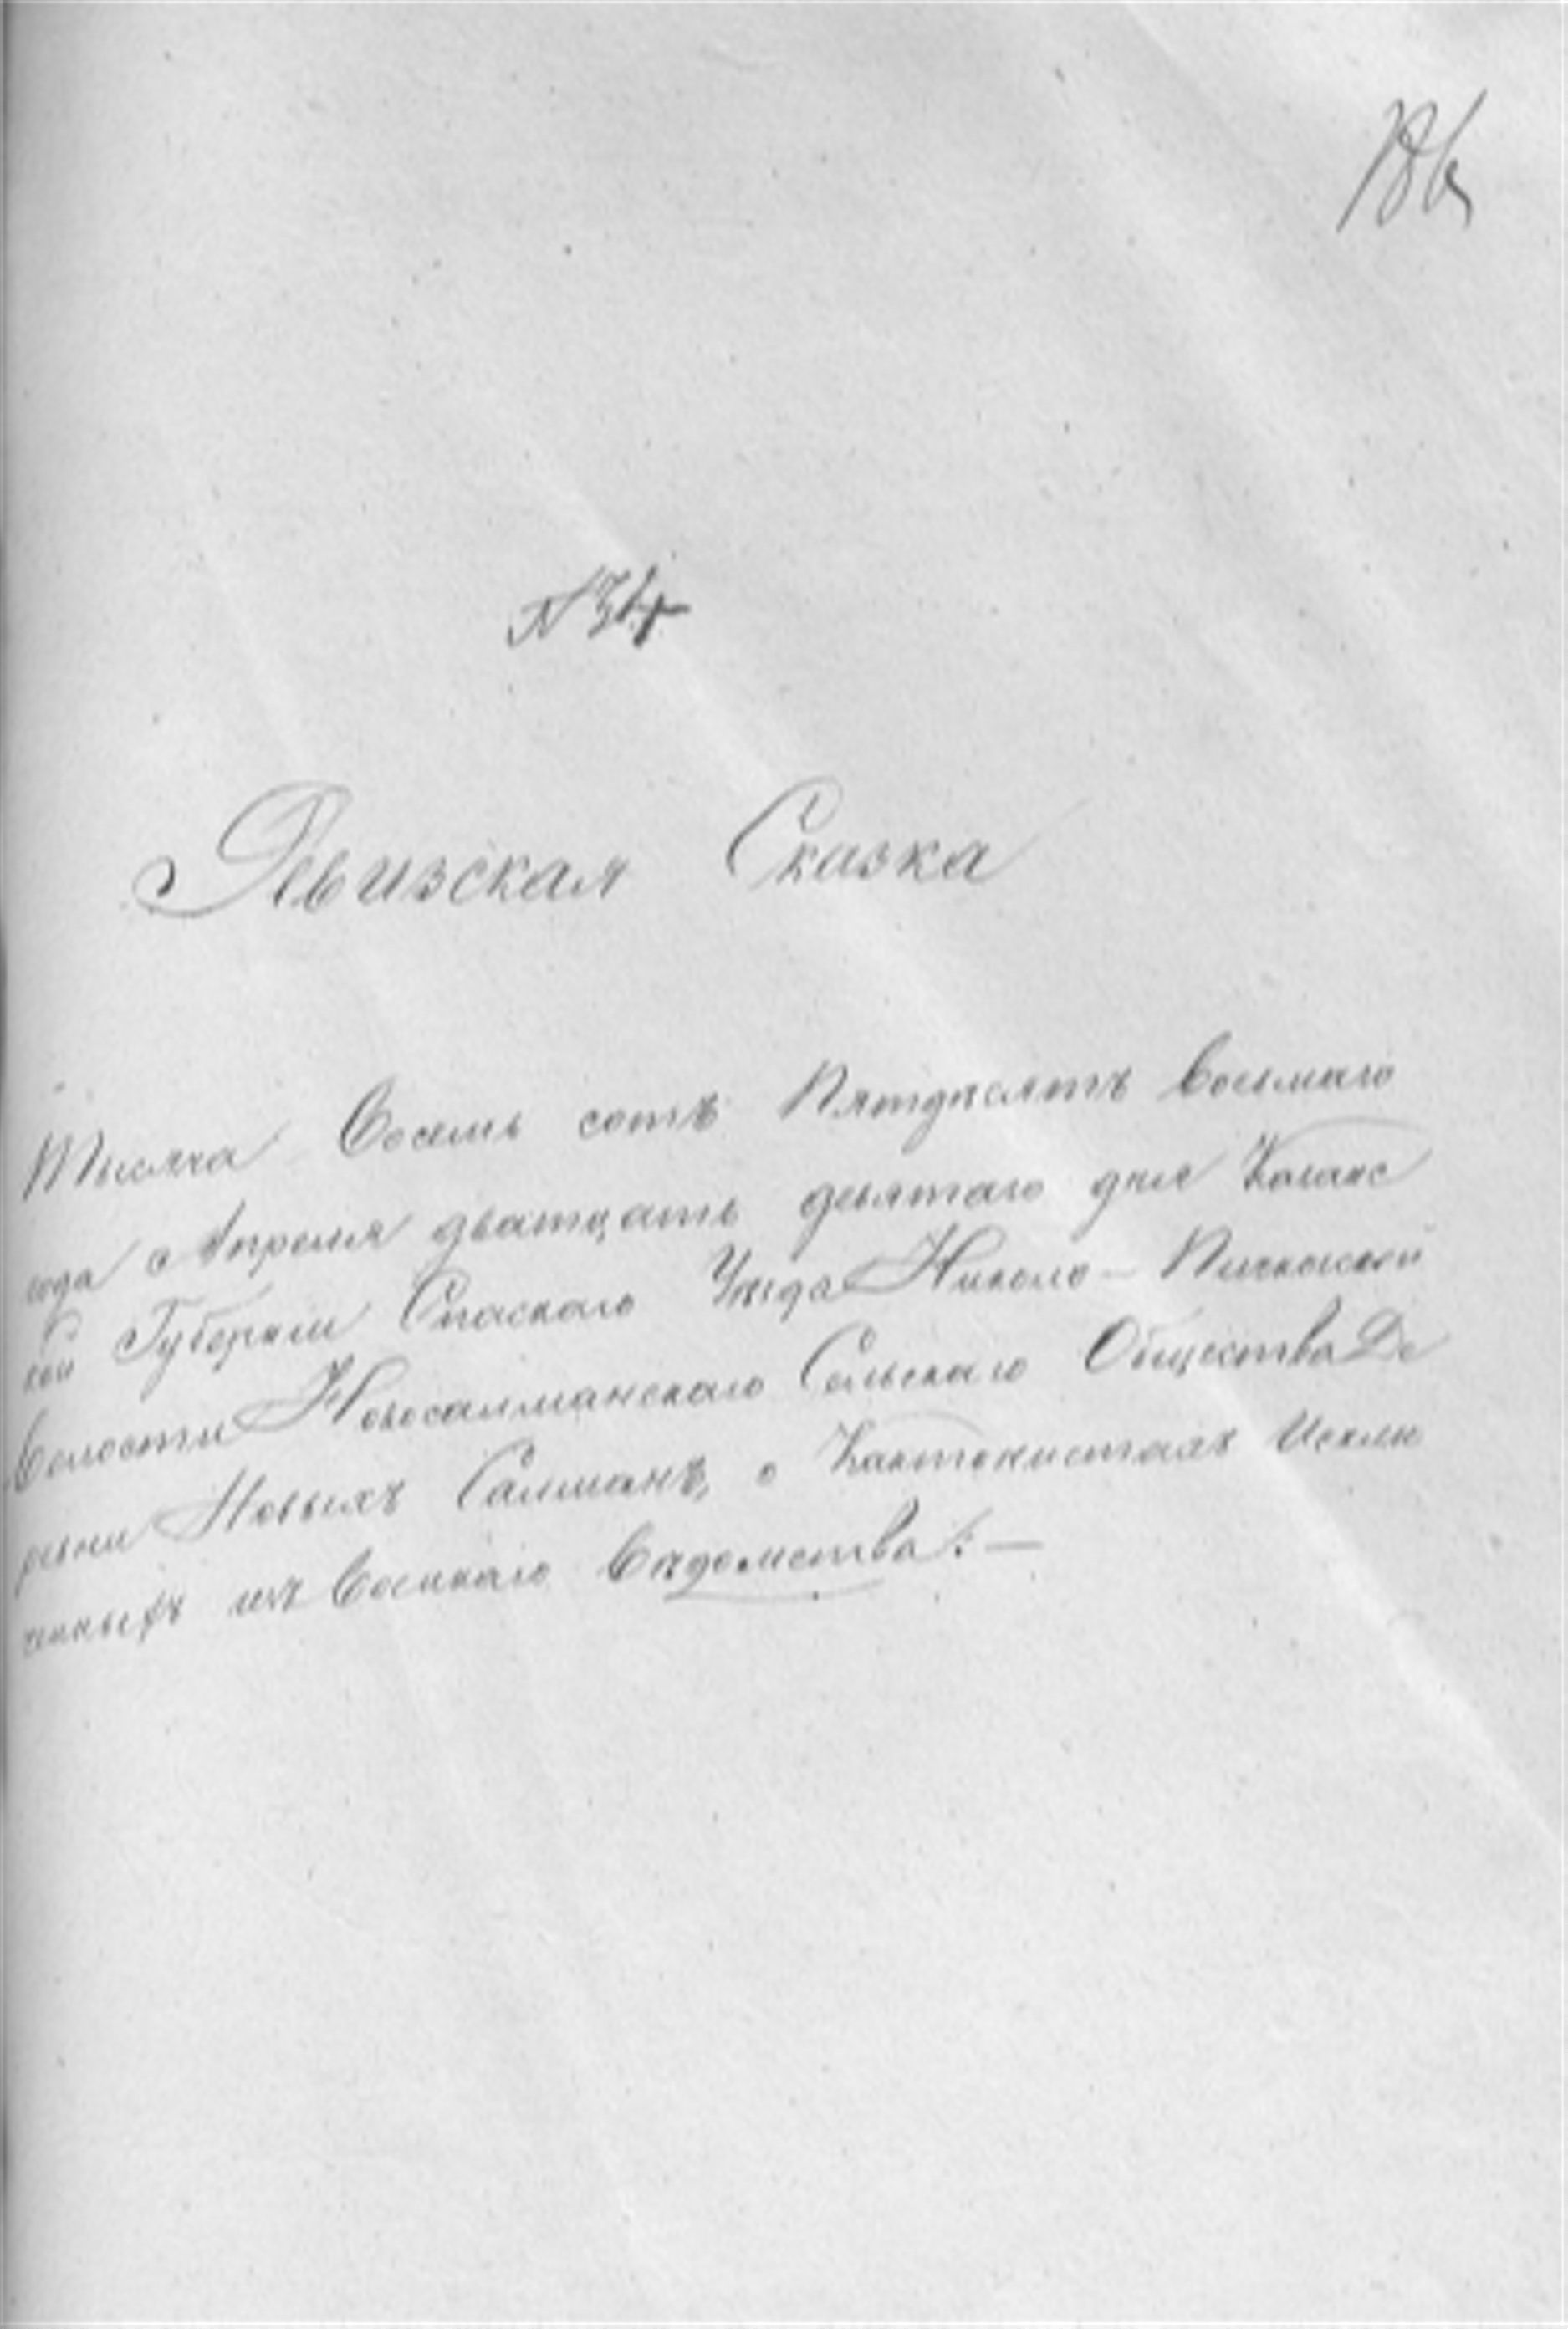 186
№ 34
Ревизская Сказка
Тысяча Восемь сотъ Пятдесятъ Восьмаго
года Апреля дватцать девятаго дня Казанс
кой Губернiи Спаскаго Уезда Николо-
Волости Новосалманскаго Сельскаго Общества Де
ревни Новыхъ Салманъ, о Кантонистахъ Исклю
ченныхъ изъ Военнаго Ведомства:—